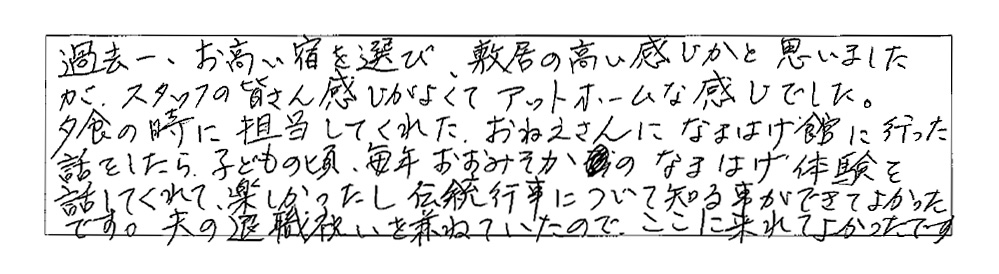 過去一、お高い宿を選び、敷居の高い感じかと思いました
が、スタッフの皆さん感じがよくてアットホームな感じでした。
夕食の時に担当してくれた、おねえさんになまはげ館に行った
話をしたら、子どもの頃、毎年おおみそかのなまはげ体験を
話してくれて、楽しかったし伝統行事について知る事ができてよかった
です。夫の退職祝いを兼ねていたので、ここに来れてよかったです